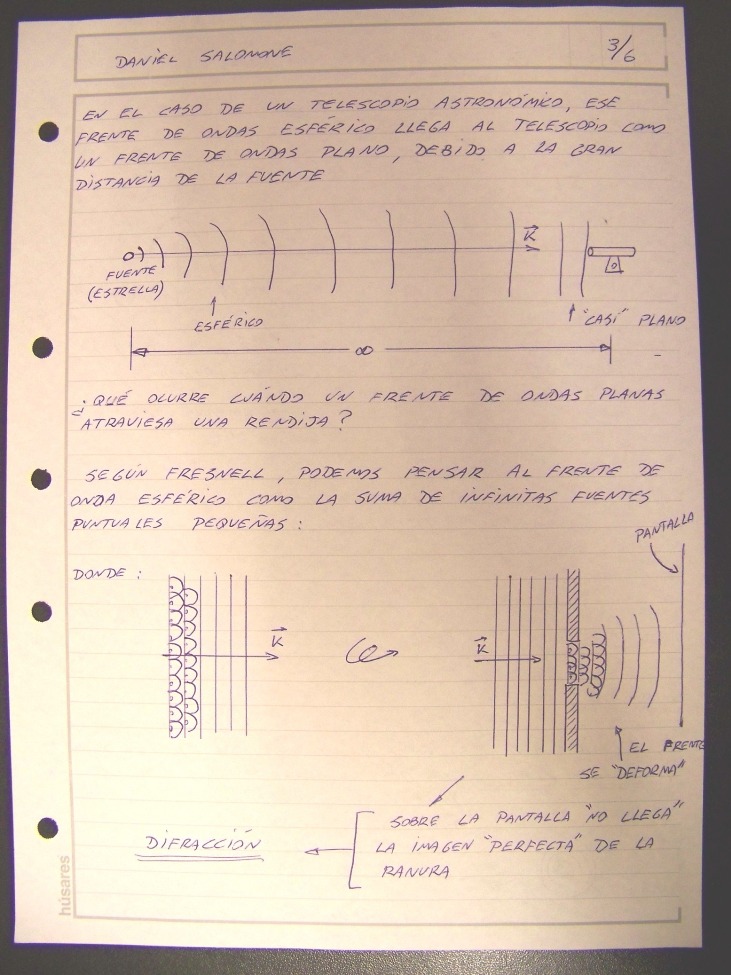 DANIEL SALOMONE
3/6
EN EL CASO DE UN TELESCOPIO ASTRONÓMICO, ESE
FRENTE DE ONDAS ESFÉRICO LLEGA AL TELESCOPIO COMO
UN FRENTE DE ONDAS PLANO, DEBIDO A LA GRAN
DISTANCIA DE LA FUENTE
K
FUENTE
(ESTRELLA)
ESFÉRICO
"CASI" PLANO
∞
¿QUÉ OCURRE CUÁNDO UN FRENTE DE ONDAS PLANAS
ATRAVIESA UNA RENDIJA?
SEGÚN FRESNELL, PODEMOS PENSAR AL FRENTE DE
ONDA ESFÉRICO COMO LA SUMA DE INFINITAS FUENTES
PUNTUALES PEQUEÑAS:
PANTALLA
DONDE:
K
K
EL FRENTE
SE "DEFORMA"
SOBRE LA PANTALLA "NO LLEGA"
LA IMAGEN "PERFECTA" DE LA
RANURA
DIFRACCIÓN
húsares